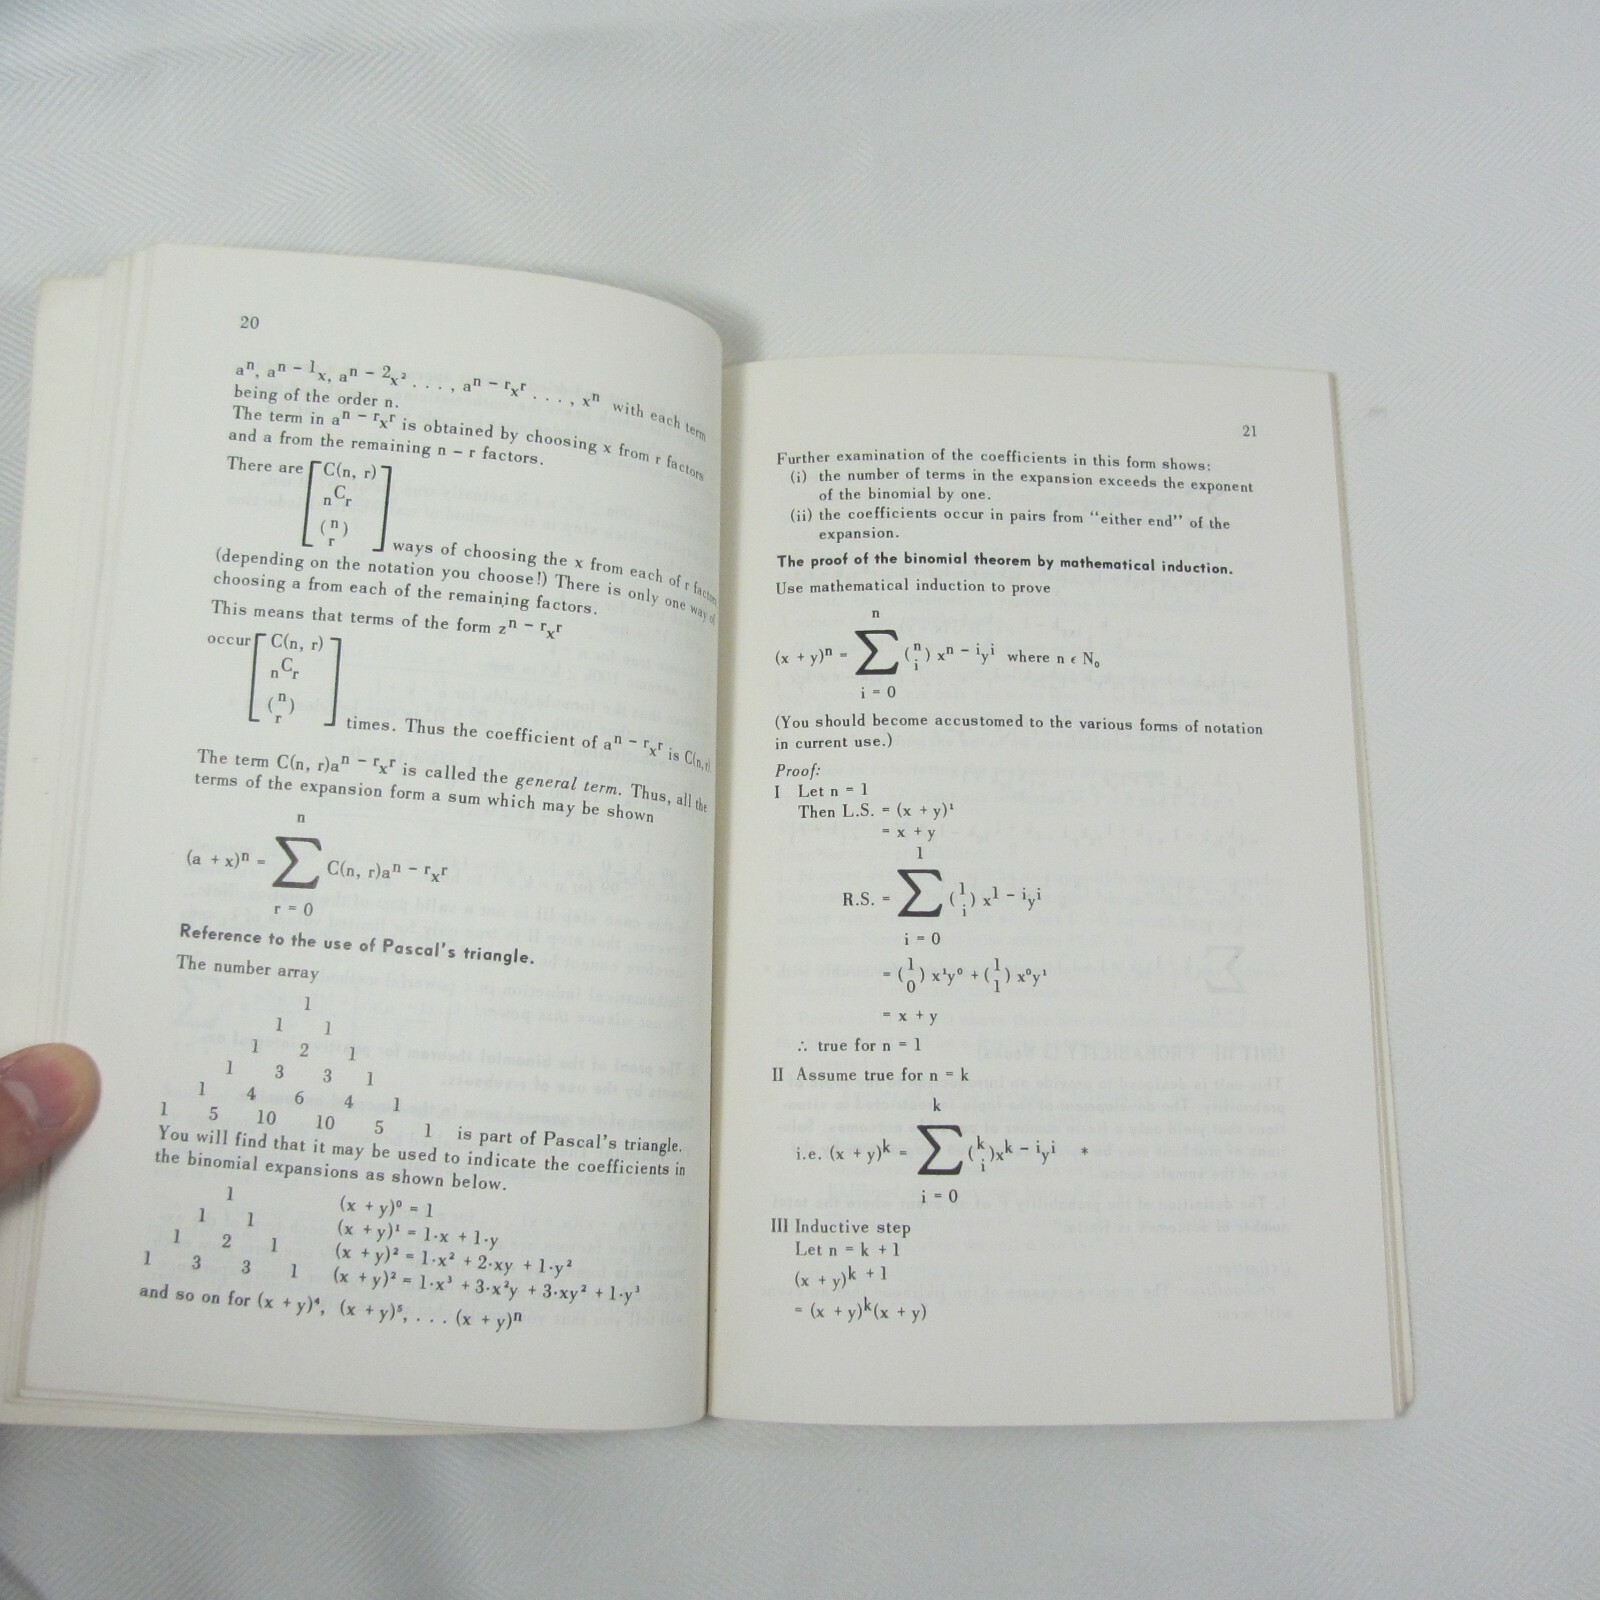 20
aⁿ, aⁿ ⁻ ¹x, aⁿ ⁻ ²x² . . . , aⁿ ⁻ ʳxʳ . . . , xⁿ with each term
being of the order n.
The term in aⁿ ⁻ ʳxʳ is obtained by choosing x from r factors
and a from the remaining n – r factors.
There are [ C(n, r) ]
nCr
(n r)
ways of choosing the x from each of r factors
(depending on the notation you choose!) There is only one way of
choosing a from each of the remaining factors.
This means that terms of the form zⁿ ⁻ ʳxʳ
occur [ C(n, r) ]
nCr
(n r)
times. Thus the coefficient of aⁿ ⁻ ʳxʳ is C(n, r).
The term C(n, r)aⁿ ⁻ ʳxʳ is called the general term. Thus, all the
terms of the expansion form a sum which may be shown
n
(a + x)ⁿ = ∑ C(n, r)aⁿ ⁻ ʳxʳ
r = 0
Reference to the use of Pascal's triangle.
The number array
1
1 1
1 2 1
1 3 3 1
1 4 6 4 1
1 5 10 10 5 1 is part of Pascal's triangle.
You will find that it may be used to indicate the coefficients in
the binomial expansions as shown below.
1 (x + y)⁰ = 1
1 1 (x + y)¹ = 1·x + 1·y
1 2 1 (x + y)² = 1·x² + 2·xy + 1·y²
1 3 3 1 (x + y)² = 1·x³ + 3·x²y + 3·xy² + 1·y³
and so on for (x + y)⁴, (x + y)⁵, . . . (x + y)ⁿ
21
Further examination of the coefficients in this form shows:
(i) the number of terms in the expansion exceeds the exponent
of the binomial by one.
(ii) the coefficients occur in pairs from "either end" of the
expansion.
The proof of the binomial theorem by mathematical induction.
Use mathematical induction to prove
n
(x + y)ⁿ = ∑ (n i) xⁿ ⁻ ⁱyⁱ where n ϵ N₀
i = 0
(You should become accustomed to the various forms of notation
in current use.)
Proof:
I Let n = 1
Then L.S. = (x + y)¹
= x + y
1
R.S. = ∑ (1 i) x¹ ⁻ ⁱyⁱ
i = 0
= (1 0) x¹y⁰ + (1 1) x⁰y¹
= x + y
∴ true for n = 1
II Assume true for n = k
k
i.e. (x + y)ᵏ = ∑ (k i)xᵏ ⁻ ⁱyⁱ *
i = 0
III Inductive step
Let n = k + 1
(x + y)ᵏ ⁺ ¹
= (x + y)ᵏ(x + y)